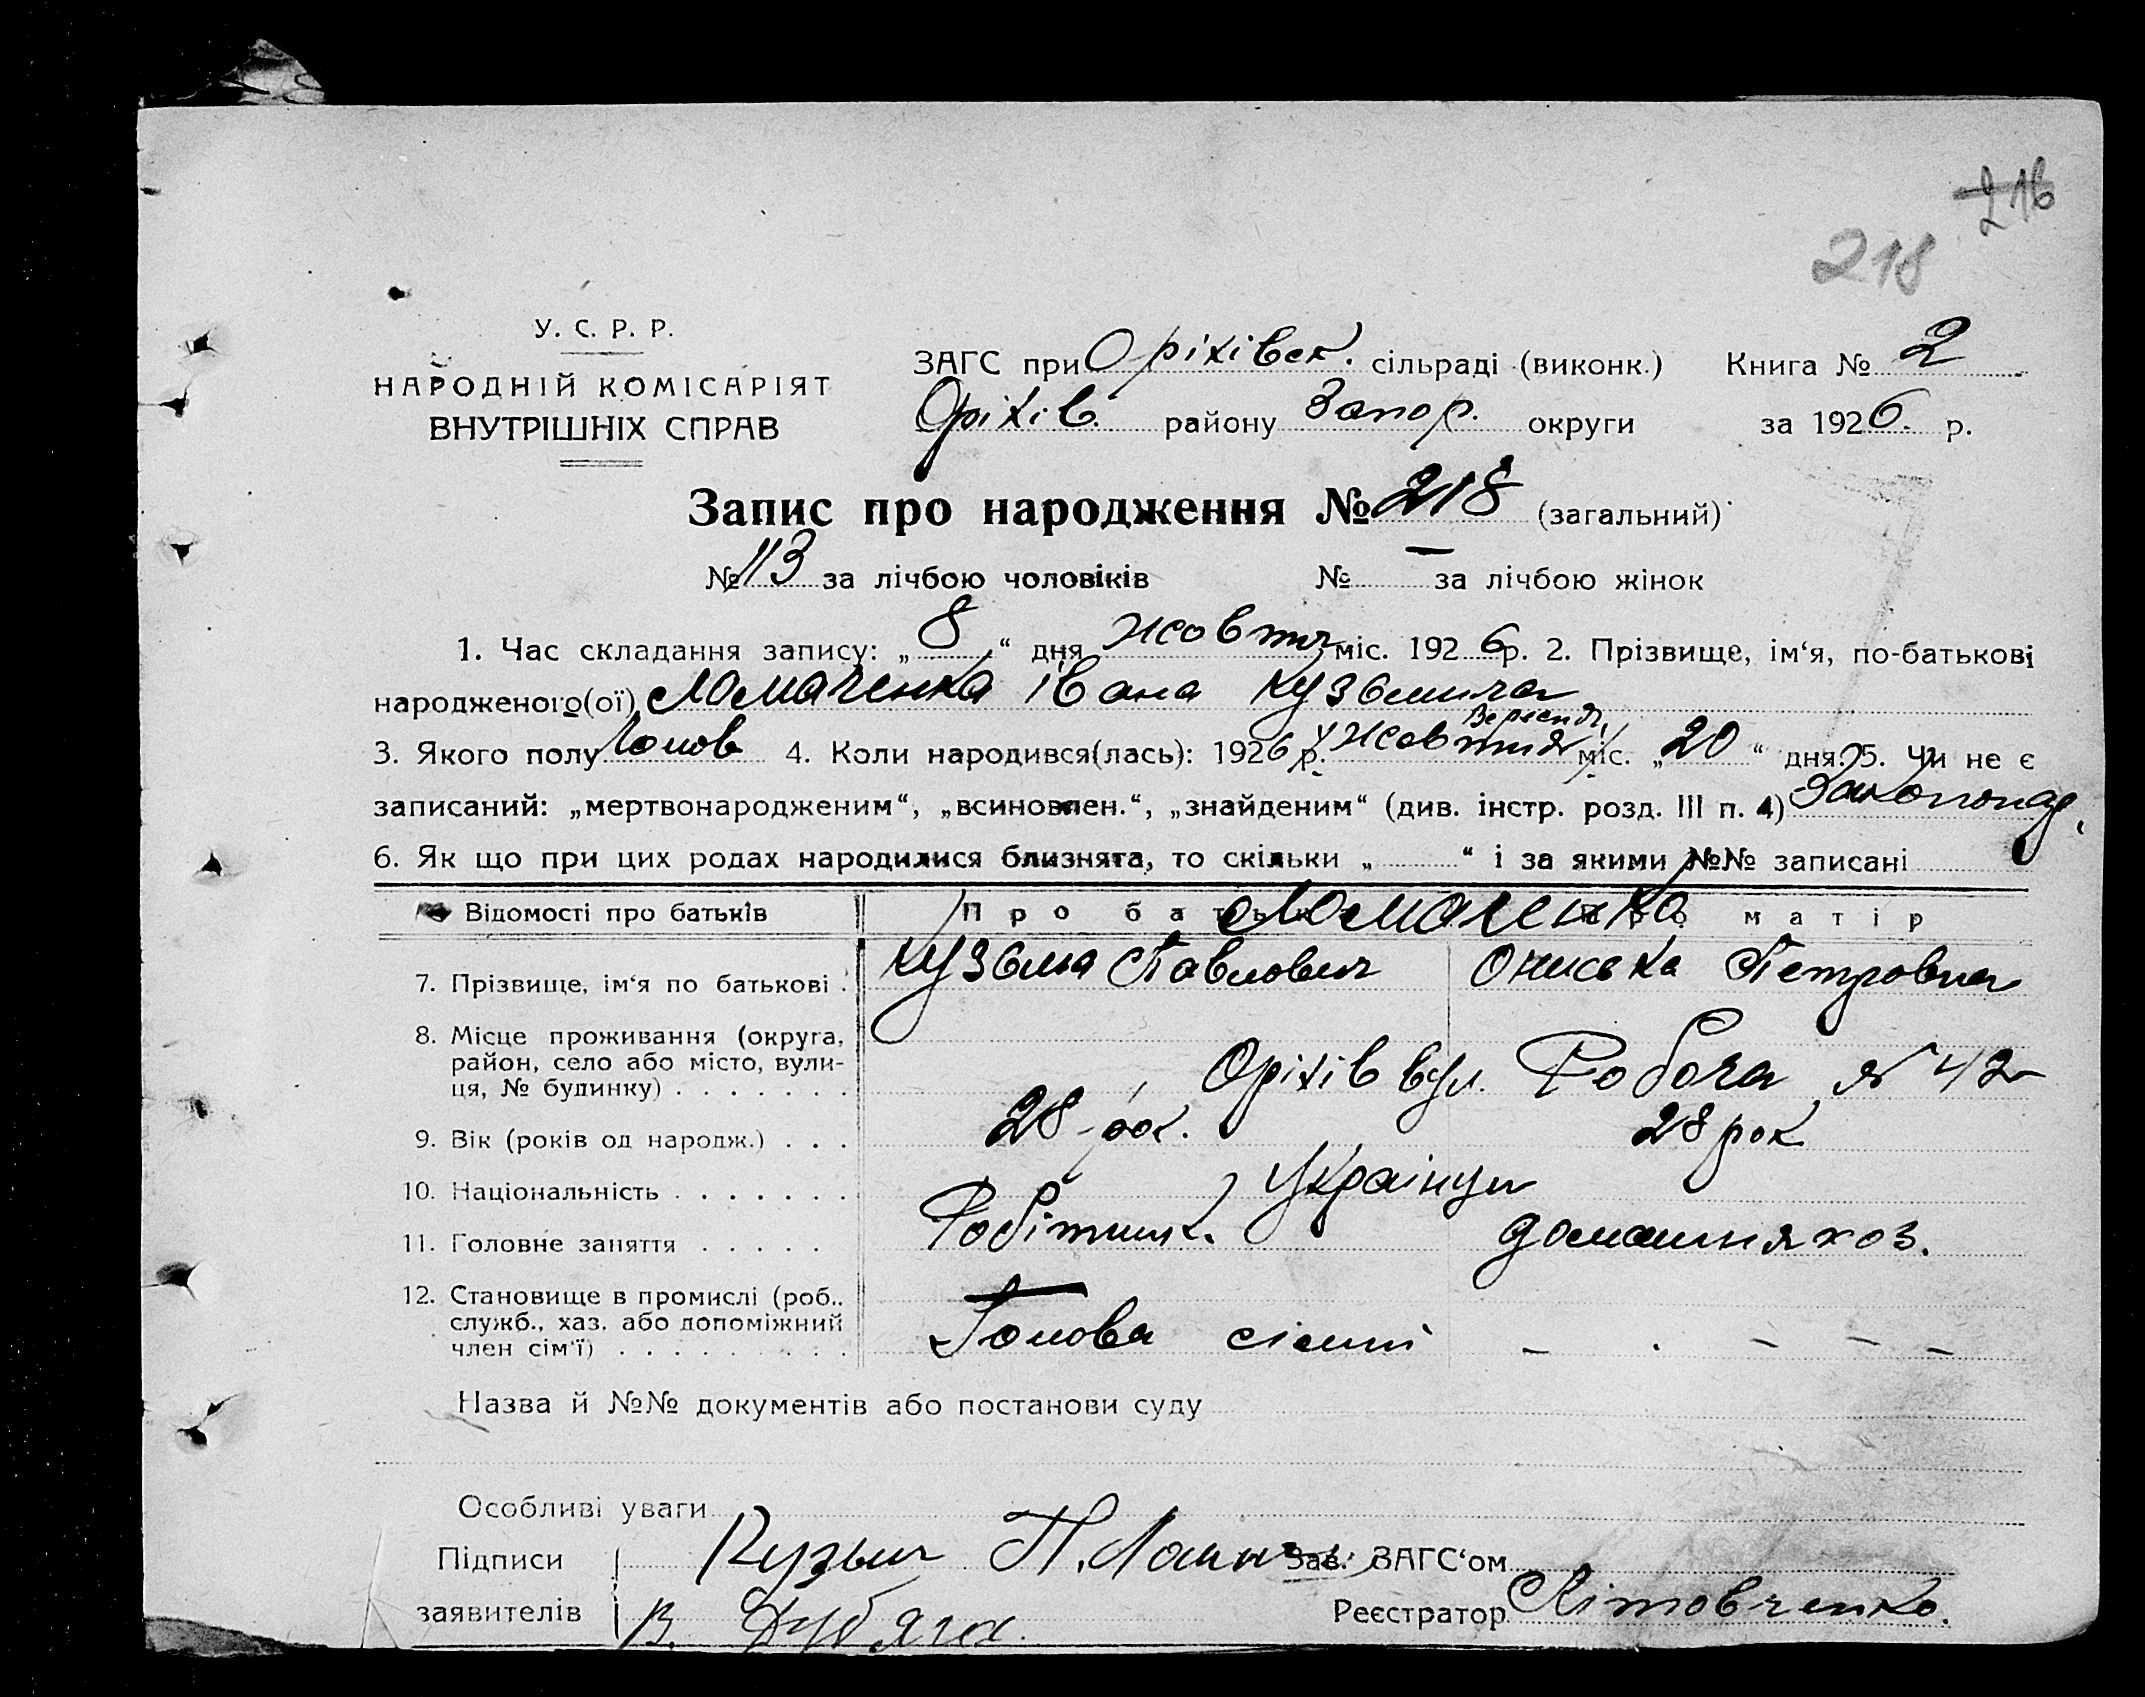 216
218
У. С. Р. Р.
НАРОДНІЙ КОМІСАРІЯТ
ВНУТРІШНІХ СПРАВ
ЗАГС при Оріхівск. сільраді (виконк.) Книга № 2
Оріхів. району Запор. округи за 1926. р.
Запис про народження № 218 (загальний)
№ 113 за лічбою чоловіків № — за лічбою жінок
1. Час складання запису: „ 8 “ дня жовтня міс. 1926 р. 2. Прізвище, ім‘я, по-батькові
народженого(ої) Ломаченка Івана Кузьмича
Вересня
3. Якого полу чолов 4. Коли народився(лась): 1926 р. жовтня міс. „ 20 “ дня. 5. Чи не є
записаний: „мертвонародженим“, „всиновлен.“, „знайденим“ (див. інстр. розд. III п. 4)
6. Як що при цих родах народилися близнята, то скільки „ “ і за якими №№ записані
Відомості про батьків Про батька Ломаченко Про матір
7. Прізвище, ім‘я по батькові . Кузьма Павлович Ониська Петровна
8. Місце проживання (округа,
район, село або місто, вули-
ця, № будинку) . . . . . . . Оріхів вул. Робоча № 42
9. Вік (років од народж.) . . . 28 рок. 28 рок
10. Національність . . . . . . . Українци
11. Головне заняття . . . . . Робітник. домашня хоз.
12. Становище в промислі (роб..
служб., хаз. або допоміжний
член сім‘ї) . . . . . . . . . Голова сіємті — . — — —
Назва й №№ документів або постанови суду
Особливі уваги
Підписи Кузьма П. Зав. ЗАГС‘ом
заявителів В. Дубяга Реєстратор Літовченко.